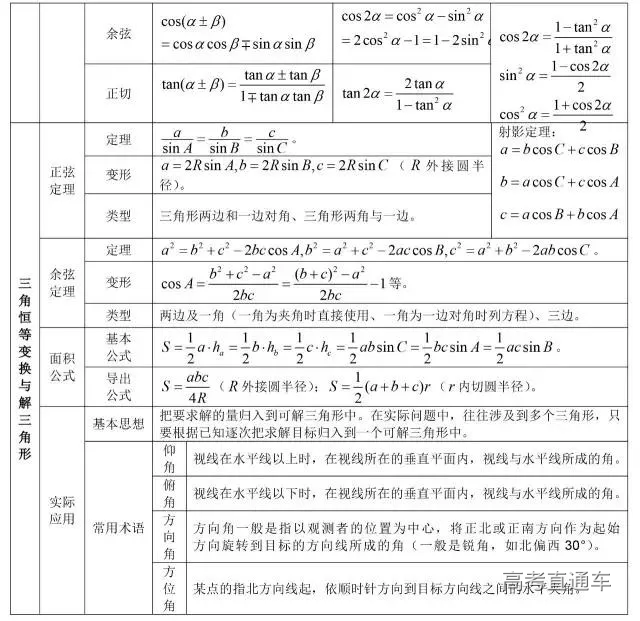 余弦
cos(α±β)
=cosαcosβ∓sinαsinβ
cos2α=cos²α−sin²α
=2cos²α−1=1−2sin²
cos2α=(1−tan²α)/(1+tan²α)
sin²α=(1−cos2α)/2
cos²α=(1+cos2α)/2
正切
tan(α±β)=(tanα±tanβ)/(1∓tanαtanβ)
tan2α=2tanα/(1−tan²α)
三角恒等变换与解三角形
正弦
定理
定理
a/sinA=b/sinB=c/sinC。
射影定理:
a=bcosC+ccosB
b=acosC+ccosA
c=acosB+bcosA
变形
a=2RsinA,b=2RsinB,c=2RsinC(R外接圆半
径)。
类型
三角形两边和一边对角、三角形两角与一边。
余弦
定理
定理
a²=b²+c²−2bccosA,b²=a²+c²−2accosB,c²=a²+b²−2abcosC。
变形
cosA=(b²+c²−a²)/2bc=((b+c)²−a²)/2bc−1等。
类型
两边及一角(一角为夹角时直接使用、一角为一边对角时列方程)、三边。
面积
公式
基本
公式
S=1/2a·hₐ=1/2b·h_b=1/2c·h_c=1/2absinC=1/2bcsinA=1/2acsinB。
导出
公式
S=abc/4R(R外接圆半径);S=1/2(a+b+c)r(r内切圆半径)。
实际
应用
基本思想
把要求解的量归入到可解三角形中。在实际问题中,往往涉及到多个三角形,只
要根据已知逐次把求解目标归入到一个可解三角形中。
常用术语
仰
角
视线在水平线以上时,在视线所在的垂直平面内,视线与水平线所成的角。
俯
角
视线在水平线以下时,在视线所在的垂直平面内,视线与水平线所成的角。
方
向
角
方向角一般是指以观测者的位置为中心,将正北或正南方向作为起始
方向旋转到目标的方向线所成的角(一般是锐角,如北偏西30°)。
方
位
角
某点的指北方向线起,依顺时针方向到目标方向线之间的水平夹角。
高考直通车